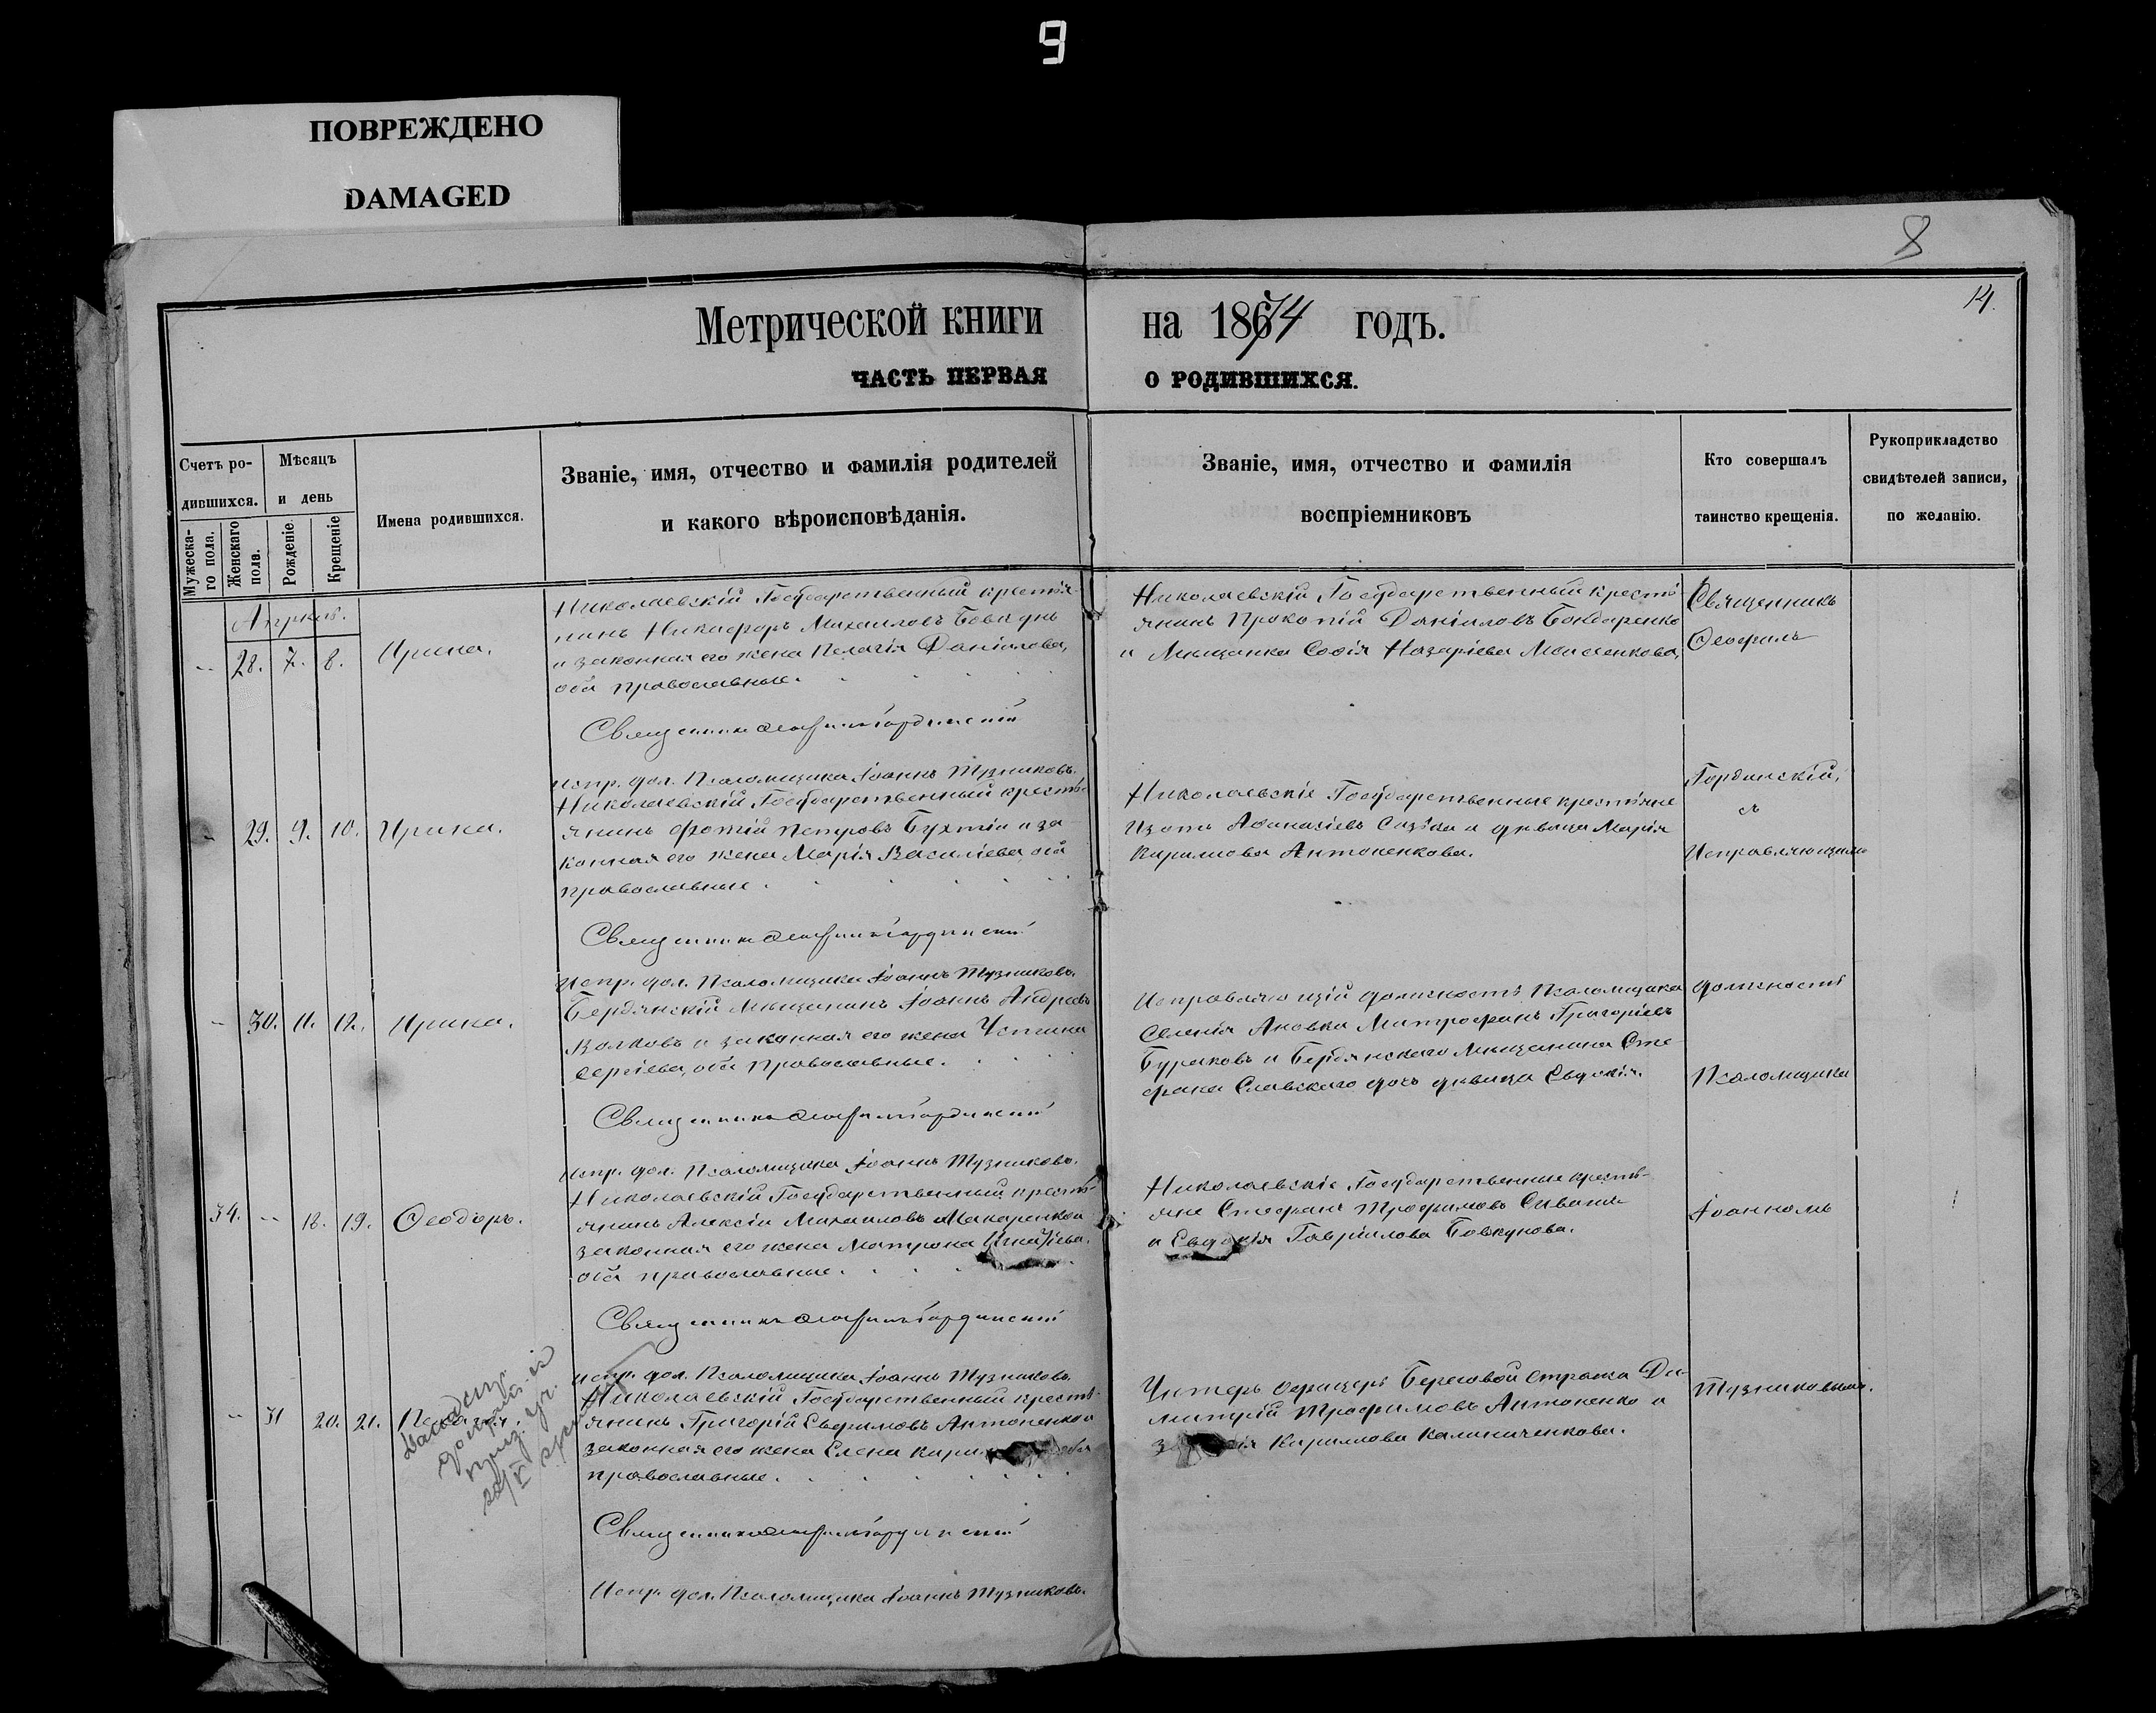 9
ПОВРЕЖДЕНО
DAMAGED
8
14.
Метрической книги на 1874 годъ.
ЧАСТЬ ПЕРВАЯ О РОДИВШИХСЯ.
Счетъ ро-
дившихся.
Мужеска-
го пола.
Женскаго
пола.
Мѣсяцъ
и день
Рожденіе.
Крещеніе
Имена родившихся.
Званіе, имя, отчество и фамилія родителей
и какого вѣроисповѣданія.
Званіе, имя, отчество и фамилія
воспріемниковъ
Кто совершалъ
таинство крещенія.
Рукоприкладство
свидѣтелей записи,
по желанію.
Апрѣль.
28. 7. 8.
Ирина.
Николаевскій Государственный крестья-
нинъ Никифоръ Михаиловъ
и законная его жена Пелагія Даніилова,
оба православные.
Священникъ Ѳеофилъ Гординскій
Испр. дол. Псаломщика Іоаннъ Тузниковъ.
Николаевскій Государственный кресть-
янинъ Прокопій Даніиловъ Бондаренко
и Мѣщанка Софія Назаріева
Священникъ
Ѳеофилъ
29. 9. 10.
Ирина.
Николаевскій Государственный кресть-
янинъ Фотій Петровъ и за-
конная его жена Марія Василіева, оба
православные.
Священникъ Ѳеофилъ Гординскій
Испр. дол. Псаломщика Іоаннъ Тузниковъ.
Николаевскіе Государственные крестьяне
Изотъ Аѳанасіевъ и дѣвица Марія
Кириллова Антоненкова.
Гординскій,
съ
Исправляющимъ
30. 11. 12.
Ирина.
Бердянскій Мѣщанинъ Іоаннъ Андреевъ
Волковъ и законная его жена Устина
Сергіева, оба православные.
Священникъ Ѳеофилъ Гординскій
Испр. дол. Псаломщика Іоаннъ Тузниковъ.
Исправляющій должность Псаломщика
Селенія Ановка Митрофанъ Григоріевъ
Бураковъ и Бердянскаго Мѣщанина Сте-
фана Славскаго дочь дѣвица Евдокія.
должность
Псаломщика
34. 18. 19.
Ѳеодоръ.
Николаевскій Государственный кресть-
янинъ Алексій Михаиловъ Макаренко и
законная его жена Матрона Игнатіева,
оба православные.
Священникъ Ѳеофилъ Гординскій
Испр. дол. Псаломщика Іоаннъ Тузниковъ.
Николаевскіе Государственные кресть-
яне Стефанъ Трофимовъ
и Евдокія Гавріилова Бовкунова.
Іоанномъ
31 20. 21.
Пелагія.
Николаевскій Государственный кресть-
янинъ Григорій Евфимовъ Антоненко и
законная его жена Елена оба
православные.
Священникъ Ѳеофилъ Гординскій
Испр. дол. Псаломщика Іоаннъ Тузниковъ.
Унтеръ офицеръ Береговой стражи Ди-
митрій Трофимовъ Антоненко и
Кириллова Калиниченкова.
Тузниковымъ.